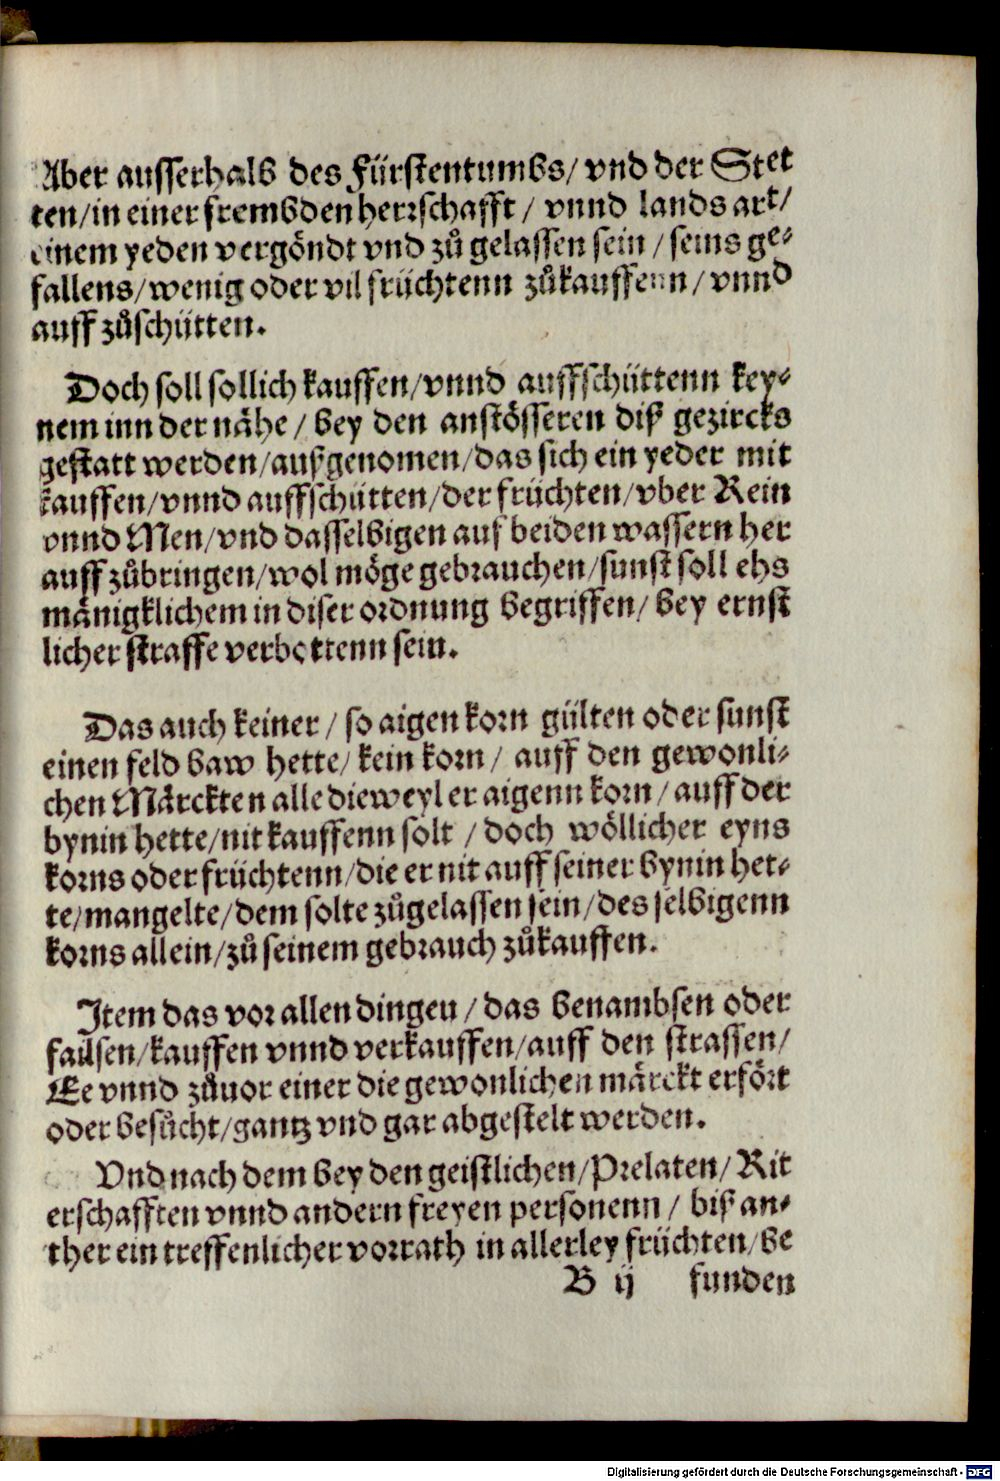 Aber ausserhalb des Fürstentumbs/ vnd der Stet
ten/in einer frembden herrschafft / vnnd lands art/
einem yeden vergöndt vnd zů gelassen sein / seins ge⸗
fallens/wenig oder vil früchtenn zůkauffenn/ vnnd
auff zůschütten.
Doch soll sollich kauffen/vnnd auffschüttenn key⸗
nem inn der nähe / bey den anstösseren diß gezircks
gestatt werden/außgenomen/das sich ein yeder mit
kauffen/vnnd auffschütten/der früchten/vber Rein
vnnd Men/vnd dasselbigen auf beiden wassern her
auff zůbringen/wol möge gebrauchen/sunst soll ehs
mänigklichem in diser ordnung begriffen/ bey ernst
licher straffe verbottenn sein.
Das auch keiner / so aigen korn gülten oder sunst
einen feld baw hette/ kein korn / auff den gewonli⸗
chen Märckten alle dieweyl er aigenn korn / auff der
bynin hette/nit kauffenn solt / doch wöllicher eyns
korns oder früchtenn/die er nit auff seiner bynin het⸗
te/mangelte/dem solte zůgelassen sein/des selbigenn
korns allein/zů seinem gebrauch zůkauffen.
Item das vor allen dingen / das benambsen oder
failsen/kauffen vnnd verkauffen/auff den strassen/
Ee vnnd zůuor einer die gewonlichen märckt erfört
oder besůcht/gantz vnd gar abgestelt werden.
Vnd nach dem bey den geistlichen/Prelaten/ Rit
erschafften vnnd andern freyen personenn / biß an⸗
ther ein treffenlicher vorrath in allerley früchten/be
B ij funden
Digitalisierung gefördert durch die Deutsche Forschungsgemeinschaft - DFG